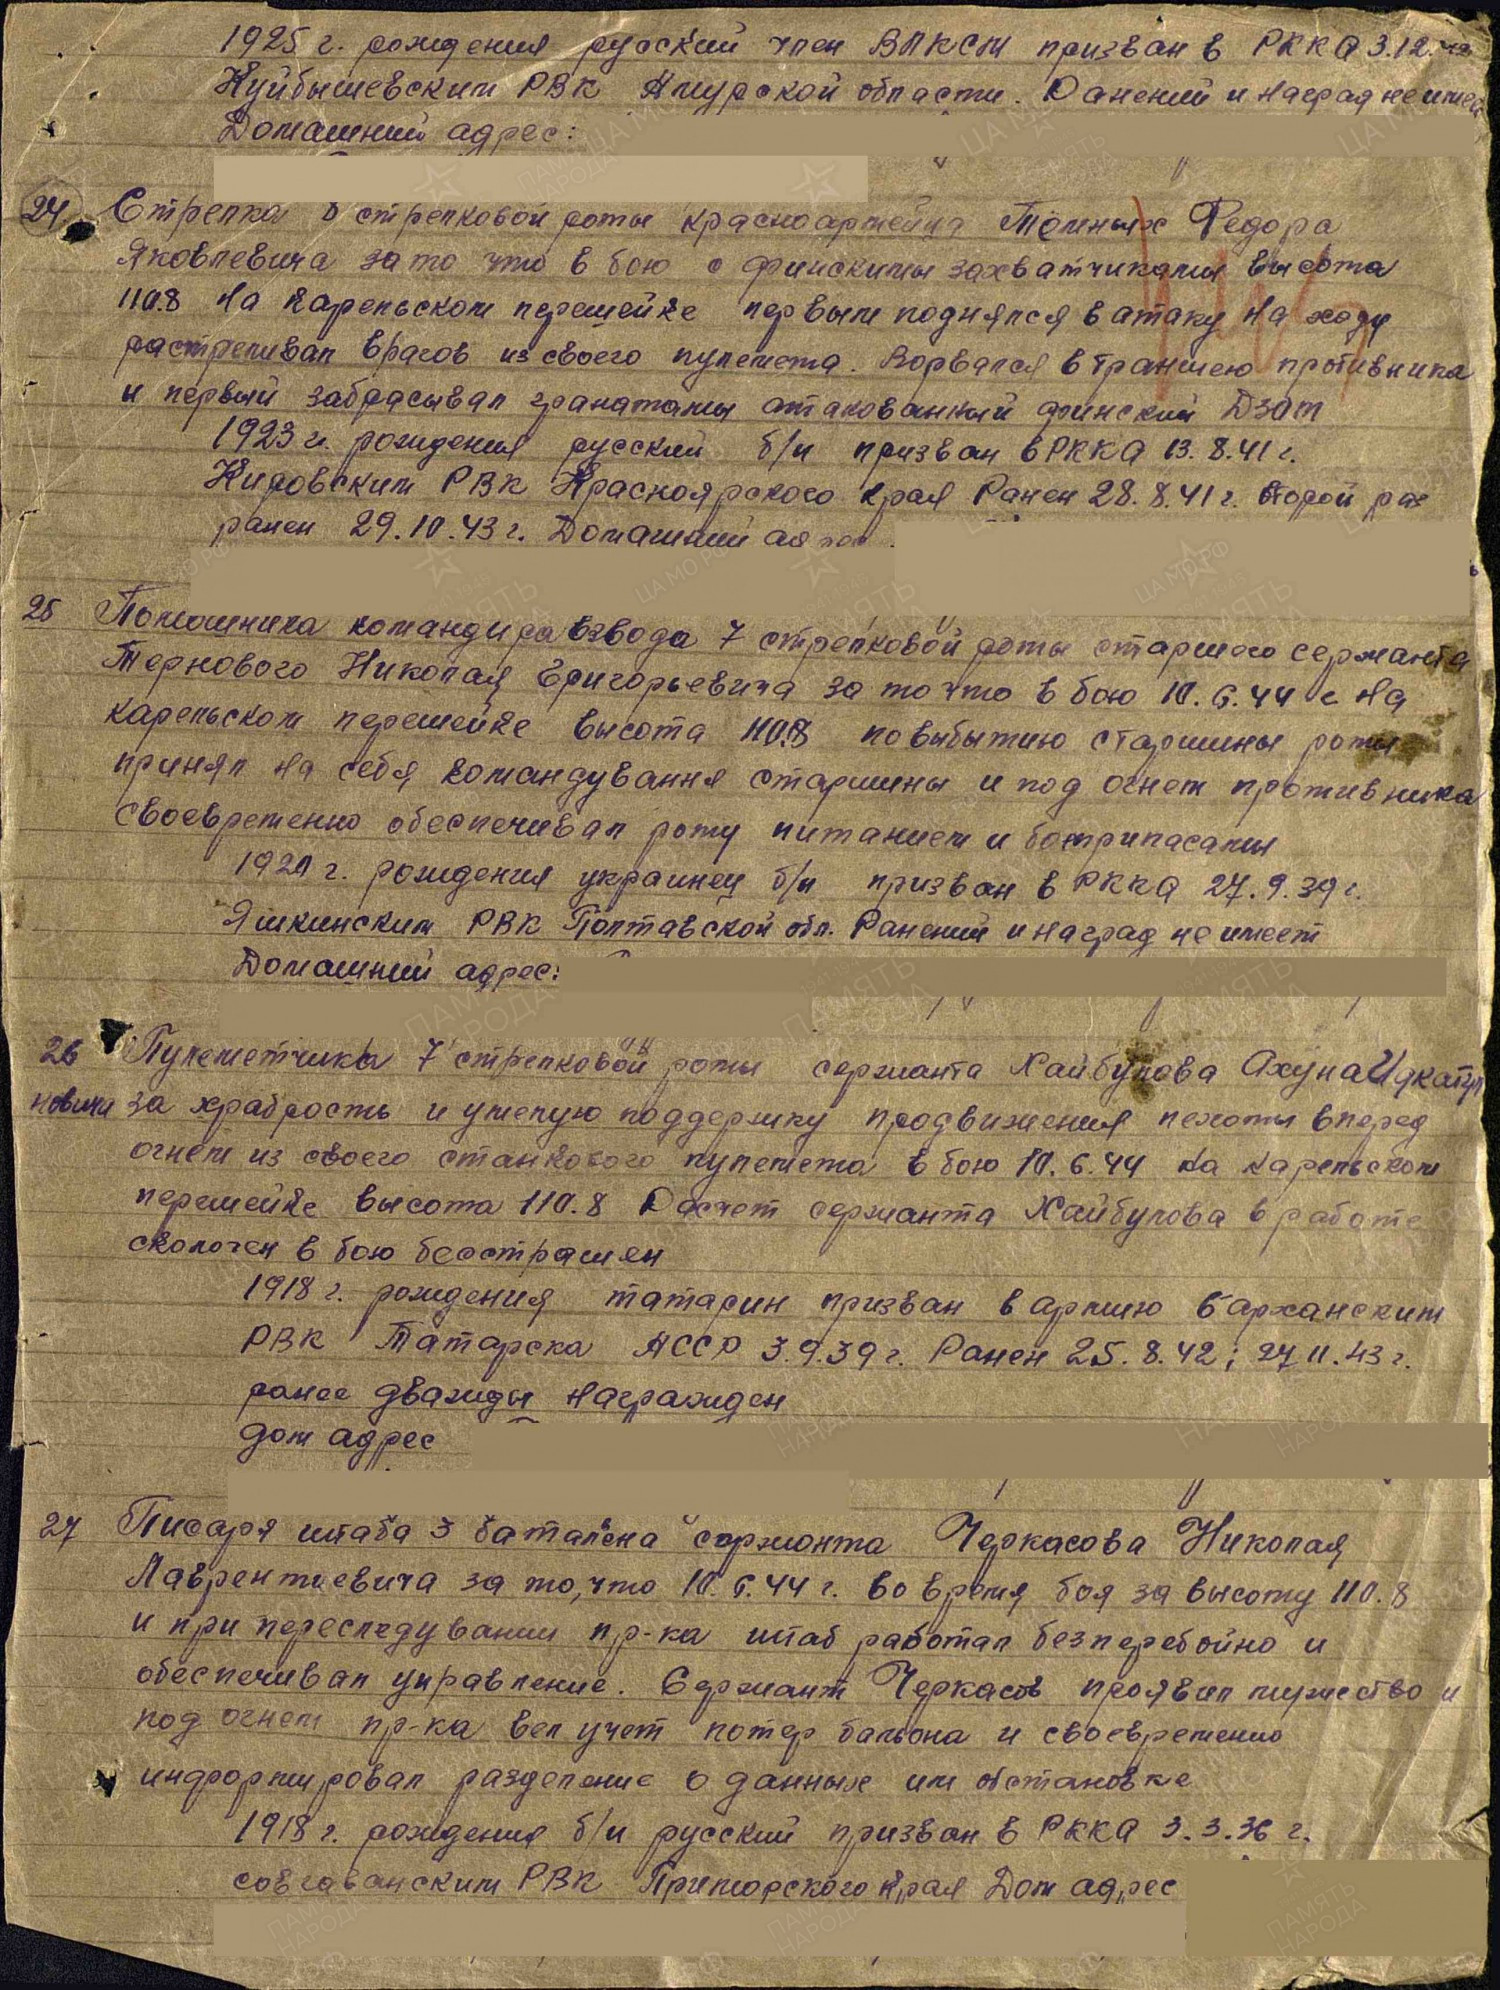 1925 г. рождения русский член ВЛКСМ призван в РККА 3.12.42
Куйбышевским РВК Амурской области. Ранений и наград не имеет
Домашний адрес:
24. Стрелка 8 стрелковой роты красноармейца Тёмных Федора
Яковлевича за то что в бою с финскими захватчиками высота
110.8 на Карельском перешейке первым поднялся в атаку на ходу
растреливал врагов из своего пулемета. Ворвался в траншею противника
и первый забрасывал гранатами атакованный финский Дзот
1923 г. рождения русский б/п призван в РККА 13.8.41 г.
Кировским РВК Красноярского края Ранен 28.8.41 г. второй раз
ранен 29.10.43 г. Домашний адрес
25 Помошника командира взвода 7 стрелковой роты старшего сержанта
Тернового Николая Григорьевича за то что в бою 10.6.44 г на
карельском перешейке высота 110.8 по выбытию старшины роты
принял на себя командувания старшины и под огнем противника
своевременно обеспечивал роту питанием и боеприпасами
1920 г. рождения украинец б/п призван в РККА 27.9.39 г.
Яшкинским РВК Полтавской обл. Ранений и наград не имеет
Домашний адрес:
26 Пулеметчика 7 стрелковой роты сержанта Хайбулова Ахуна
новича за храбрость и умелую поддержку продвижения пехоты вперед
огнем из своего станкового пулемета в бою 10.6.44 на карельском
перешейке высота 110.8 Расчет сержанта Хайбулова в работе
сколочен в бою бесстрашен
1918 г. рождения татарин призван в армию барханским
РВК Татарска АССР 3.9.39 г. Ранен 25.8.42; 27.11.43 г.
ранее дважды награжден
дом адрес
27 Писаря штаба 3 батальена сержанта Черкасова Николая
Лаврентиевича за то, что 10.6.44 г. во время боя за высоту 110.8
и при переследувании пр-ка штаб работал безперебойно и
обеспечивал управление. Сержант Черкасов проявил мужество и
под огнем пр-ка вел учет потер бальона и своевременно
информировал разделение о данных им обстановке
1918 г. рождения б/п русский призван в РККА 3.3.36 г.
совгаванским РВК Приморского края Дом адрес